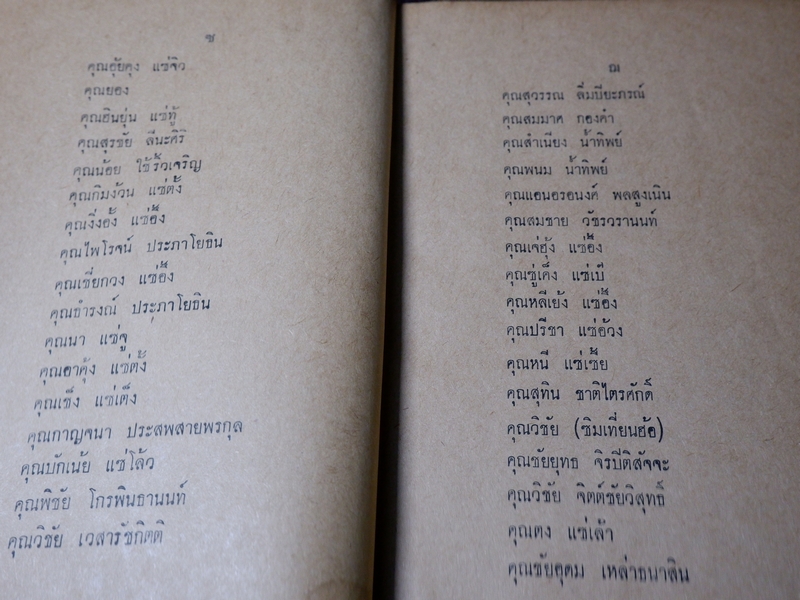 ซ
คุณฮุ้ยคุง แซ่จิว
คุณยอง
คุณฮินยุ่น แซ่ทู้
คุณสุรชัย ลีนะศิริ
คุณน้อย ใช้รั้วเจริญ
คุณกิมง้วน แซ่ตั้ง
คุณงิ่งฮั้ง แซ่อึ้ง
คุณไพโรจน์ ประภาโยธิน
คุณเชี่ยกวง แซ่อึ้ง
คุณธำรงณ์ ประภาโยธิน
คุณนา แซ่จู
คุณฮาคุ้ง แซ่ตั้ง
คุณเช็ง แซ่เต็ง
คุณกาญจนา ประสพสายพรกุล
คุณบักเนัย แซ่โล้ว
คุณพิชัย โกรพินธานนท์
คุณวิชัย เวสารัชกิตติ
ฌ
คุณสุวรรณ ลิ่มปิยะภรณ์
คุณสมมาศ กองคำ
คุณสำเนียง น้ำทิพย์
คุณพนม น้ำทิพย์
คุณแอนอรอนงค์ พลสูงเนิน
คุณสมชาย วัชรวรานนท์
คุณเจ่ฮุ้ง แซ่อึ้ง
คุณซู่เค็ง แซ่เบ๊
คุณหลีเย้ง แซ่อึ้ง
คุณปรีชา แซ่อ้วง
คุณหนี แซ่เซี้ย
คุณสุทิน ชาติไตรศักดิ์
คุณวิชัย (ซิมเที่ยนฮ้อ)
คุณชัยยุทธ จิรปีติสัจจะ
คุณวิชัย จิตต์ชัยวิสุทธิ์
คุณตง แซ่เล้า
คุณชัยอุดม เหล่าธนาสิน